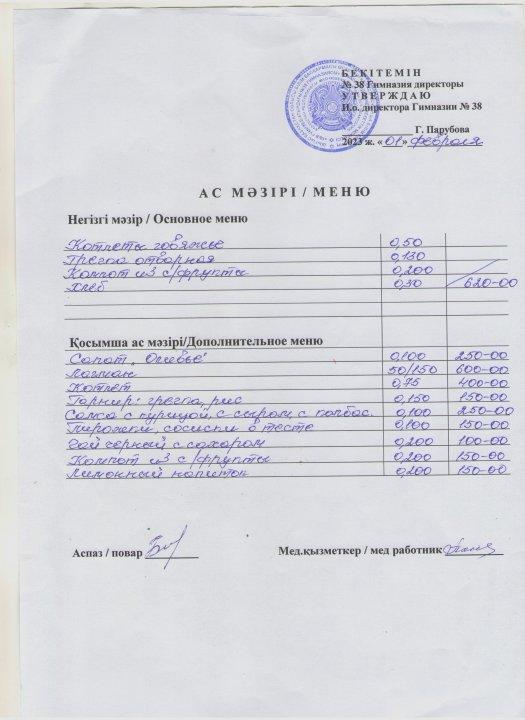 БЕКІТЕМІН
№ 38 Гимназия директоры
УТВЕРЖДАЮ
И.о. директора Гимназии № 38
Г. Парубова
2023 ж. «01» февраля
АС МӘЗІРІ / МЕНЮ
Негізгі мәзір / Основное меню
Котлеты говяжье 0,50
Гречка отварная 0,130
Компот из с/фрукты 0,200
Хлеб 0,30 620-00
Қосымша ас мәзірі/Дополнительное меню
Салат „Оливье" 0,100 250-00
Лагман 50/150 600-00
Котлет 0,75 400-00
Гарнир: гречка, рис 0,150 150-00
Самса с курицой, с сыром, с колбас. 0,100 250-00
Пирожки, сосиски в тесте 0,100 150-00
Чай черный с сахаром 0,200 100-00
Компот из с/фрукты 0,200 150-00
Лимонный напиток 0,200 150-00
Аспаз / повар Мед.қызметкер / мед работник